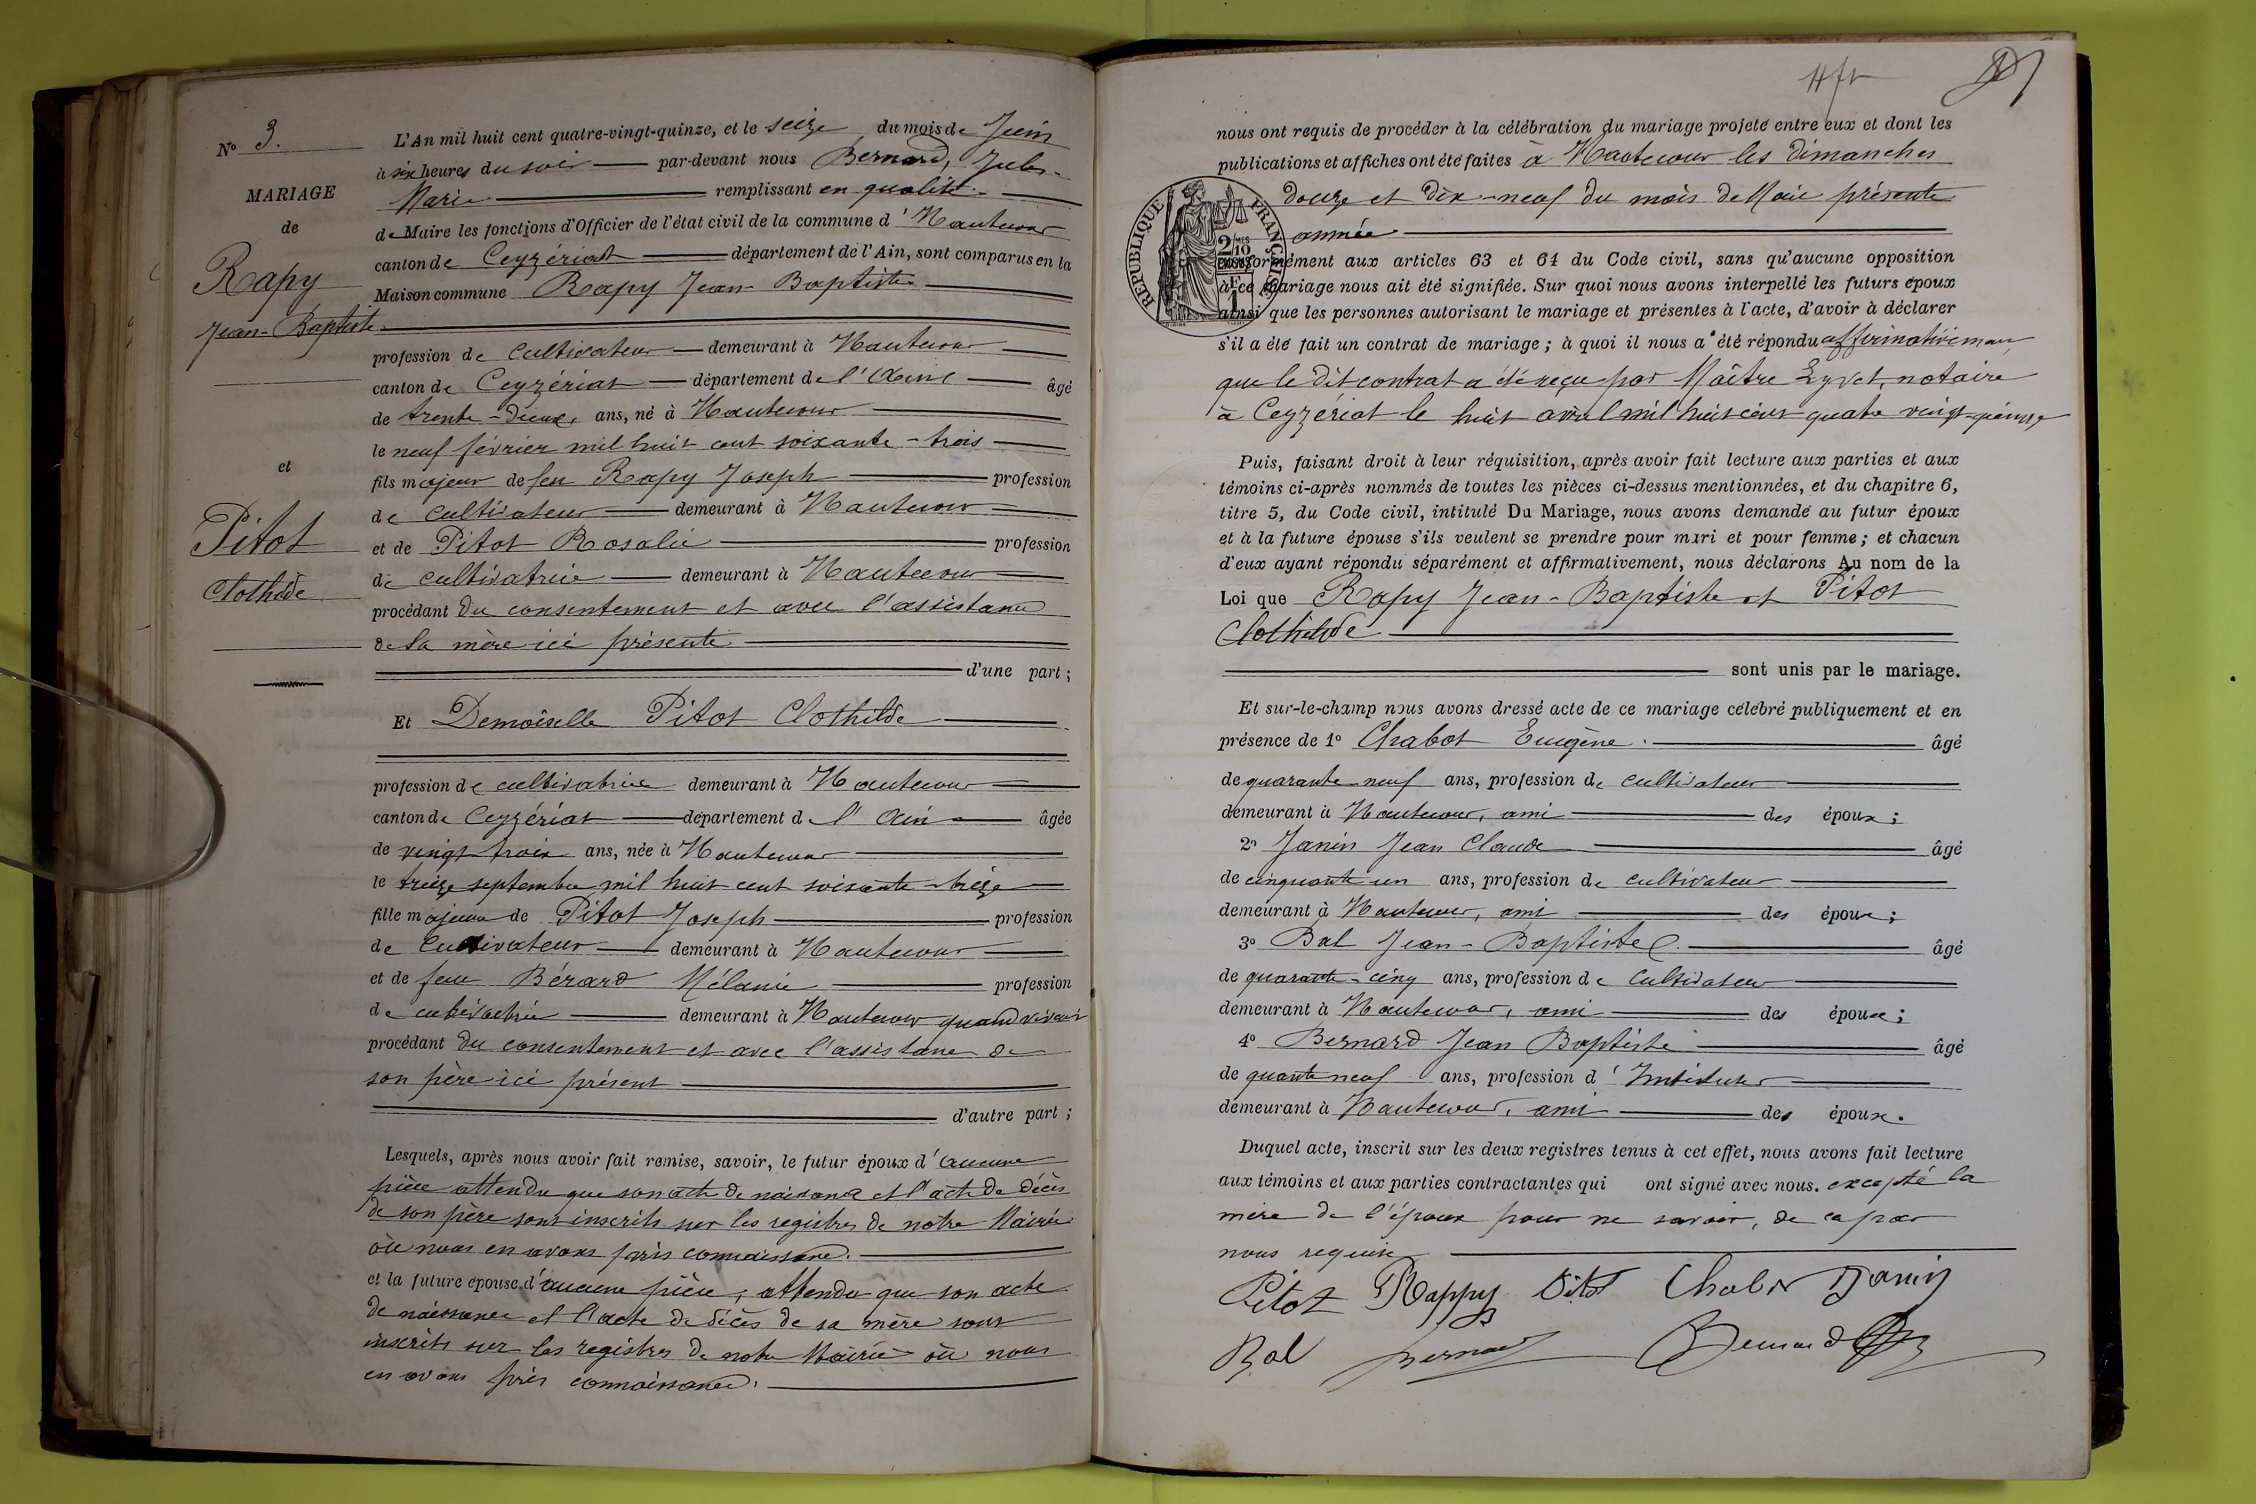 N° 3.
MARIAGE
de
Rapy
Jean-Baptiste
et
Pitot
Clothilde
L'An mil huit cent quatre-vingt-quinze, et le seize du mois de Juin
à six heures du soir par-devant nous Bernard, Jules-
Marie remplissant en qualité
de Maire les fonctions d'Officier de l'état civil de la commune d'Hautecour
canton de Ceyzériat département de l'Ain, sont comparus en la
Maison commune Rapy Jean-Baptiste
profession de cultivateur demeurant à Hautecour
canton de Ceyzériat département de l'Ain âgé
de trente-deux, ans, né à Hautecour
le neuf février mil huit cent soixante-trois
fils majeur de feu Rapy Joseph profession
de cultivateur demeurant à Hautecour
et de Pitot Rosalie profession
de cultivatrice demeurant à Hautecour
procédant du consentement et avec l'assistance
de sa mère ici présente
d'une part ;
Et Demoiselle Pitot Clothilde
profession de cultivatrice demeurant à Hautecour
canton de Ceyzériat département d l'Ain âgée
de vingt trois ans, née à Hautecour
le treize septembre mil huit cent soixante-treize
fille majeure de Pitot Joseph profession
de cultivateur demeurant à Hautecour
et de feue Bérard Mélanie profession
de cultivatrice demeurant à Hautecour quand vivait
procédant du consentement et avec l'assistance de
son père ici présent
d'autre part ;
Lesquels, après nous avoir fait remise, savoir, le futur époux d'aucune
pièce attendu que son acte de naissance et l'acte de décès
de son père sont inscrits sur les registres de notre Mairie
où nous en avons pris connaissance.
et la future épouse, d'aucune pièce, attendu que son acte
de naissance et l'acte de décès de sa mère sont
inscrits sur les registres de notre Mairie où nous
en avons pris connaissance.
nous ont requis de procéder à la célébration du mariage projeté entre eux et dont les
publications et affiches ont été faites à Hautecour les dimanches
douze et dix-neuf du mois de Mai présente
année
RÉPUBLIQUE FRANÇAISE
2/10
conformément aux articles 63 et 64 du Code civil, sans qu'aucune opposition
à ce mariage nous ait été signifiée. Sur quoi nous avons interpellé les futurs époux
ainsi que les personnes autorisant le mariage et présentes à l'acte, d'avoir à déclarer
s'il a été fait un contrat de mariage ; à quoi il nous a été répondu affirmativement
que le dit contrat a été reçu par Maître notaire
à Ceyzériat le huit avril mil huit cent quatre vingt-quinze
Puis, faisant droit à leur réquisition, après avoir fait lecture aux parties et aux
témoins ci-après nommés de toutes les pièces ci-dessus mentionnées, et du chapitre 6,
titre 5, du Code civil, intitulé Du Mariage, nous avons demandé au futur époux
et à la future épouse s'ils veulent se prendre pour mari et pour femme ; et chacun
d'eux ayant répondu séparément et affirmativement, nous déclarons Au nom de la
Loi que Rapy Jean-Baptiste et Pitot
Clothilde
sont unis par le mariage.
Et sur-le-champ nous avons dressé acte de ce mariage célébré publiquement et en
présence de 1° Chabot Eugène. âgé
de quarante-neuf ans, profession de cultivateur
demeurant à Hautecour, ami des époux ;
2° Janin Jean Claude âgé
de cinquante un ans, profession de cultivateur
demeurant à Hautecour, ami des époux ;
3° Bal Jean-Baptiste C. âgé
de quarante-cinq ans, profession de cultivateur
demeurant à Hautecour, ami des époux ;
4° Bernard Jean Baptiste âgé
de quante neuf ans, profession d'Instituteur
demeurant à Hautecour, ami des époux.
Duquel acte, inscrit sur les deux registres tenus à cet effet, nous avons fait lecture
aux témoins et aux parties contractantes qui ont signé avec nous. excepté la
mère de l'époux pour ne savoir, de ce par
nous requise
Pitot Rappy Pitot Chabot Janin
Bal Bernard Bernard